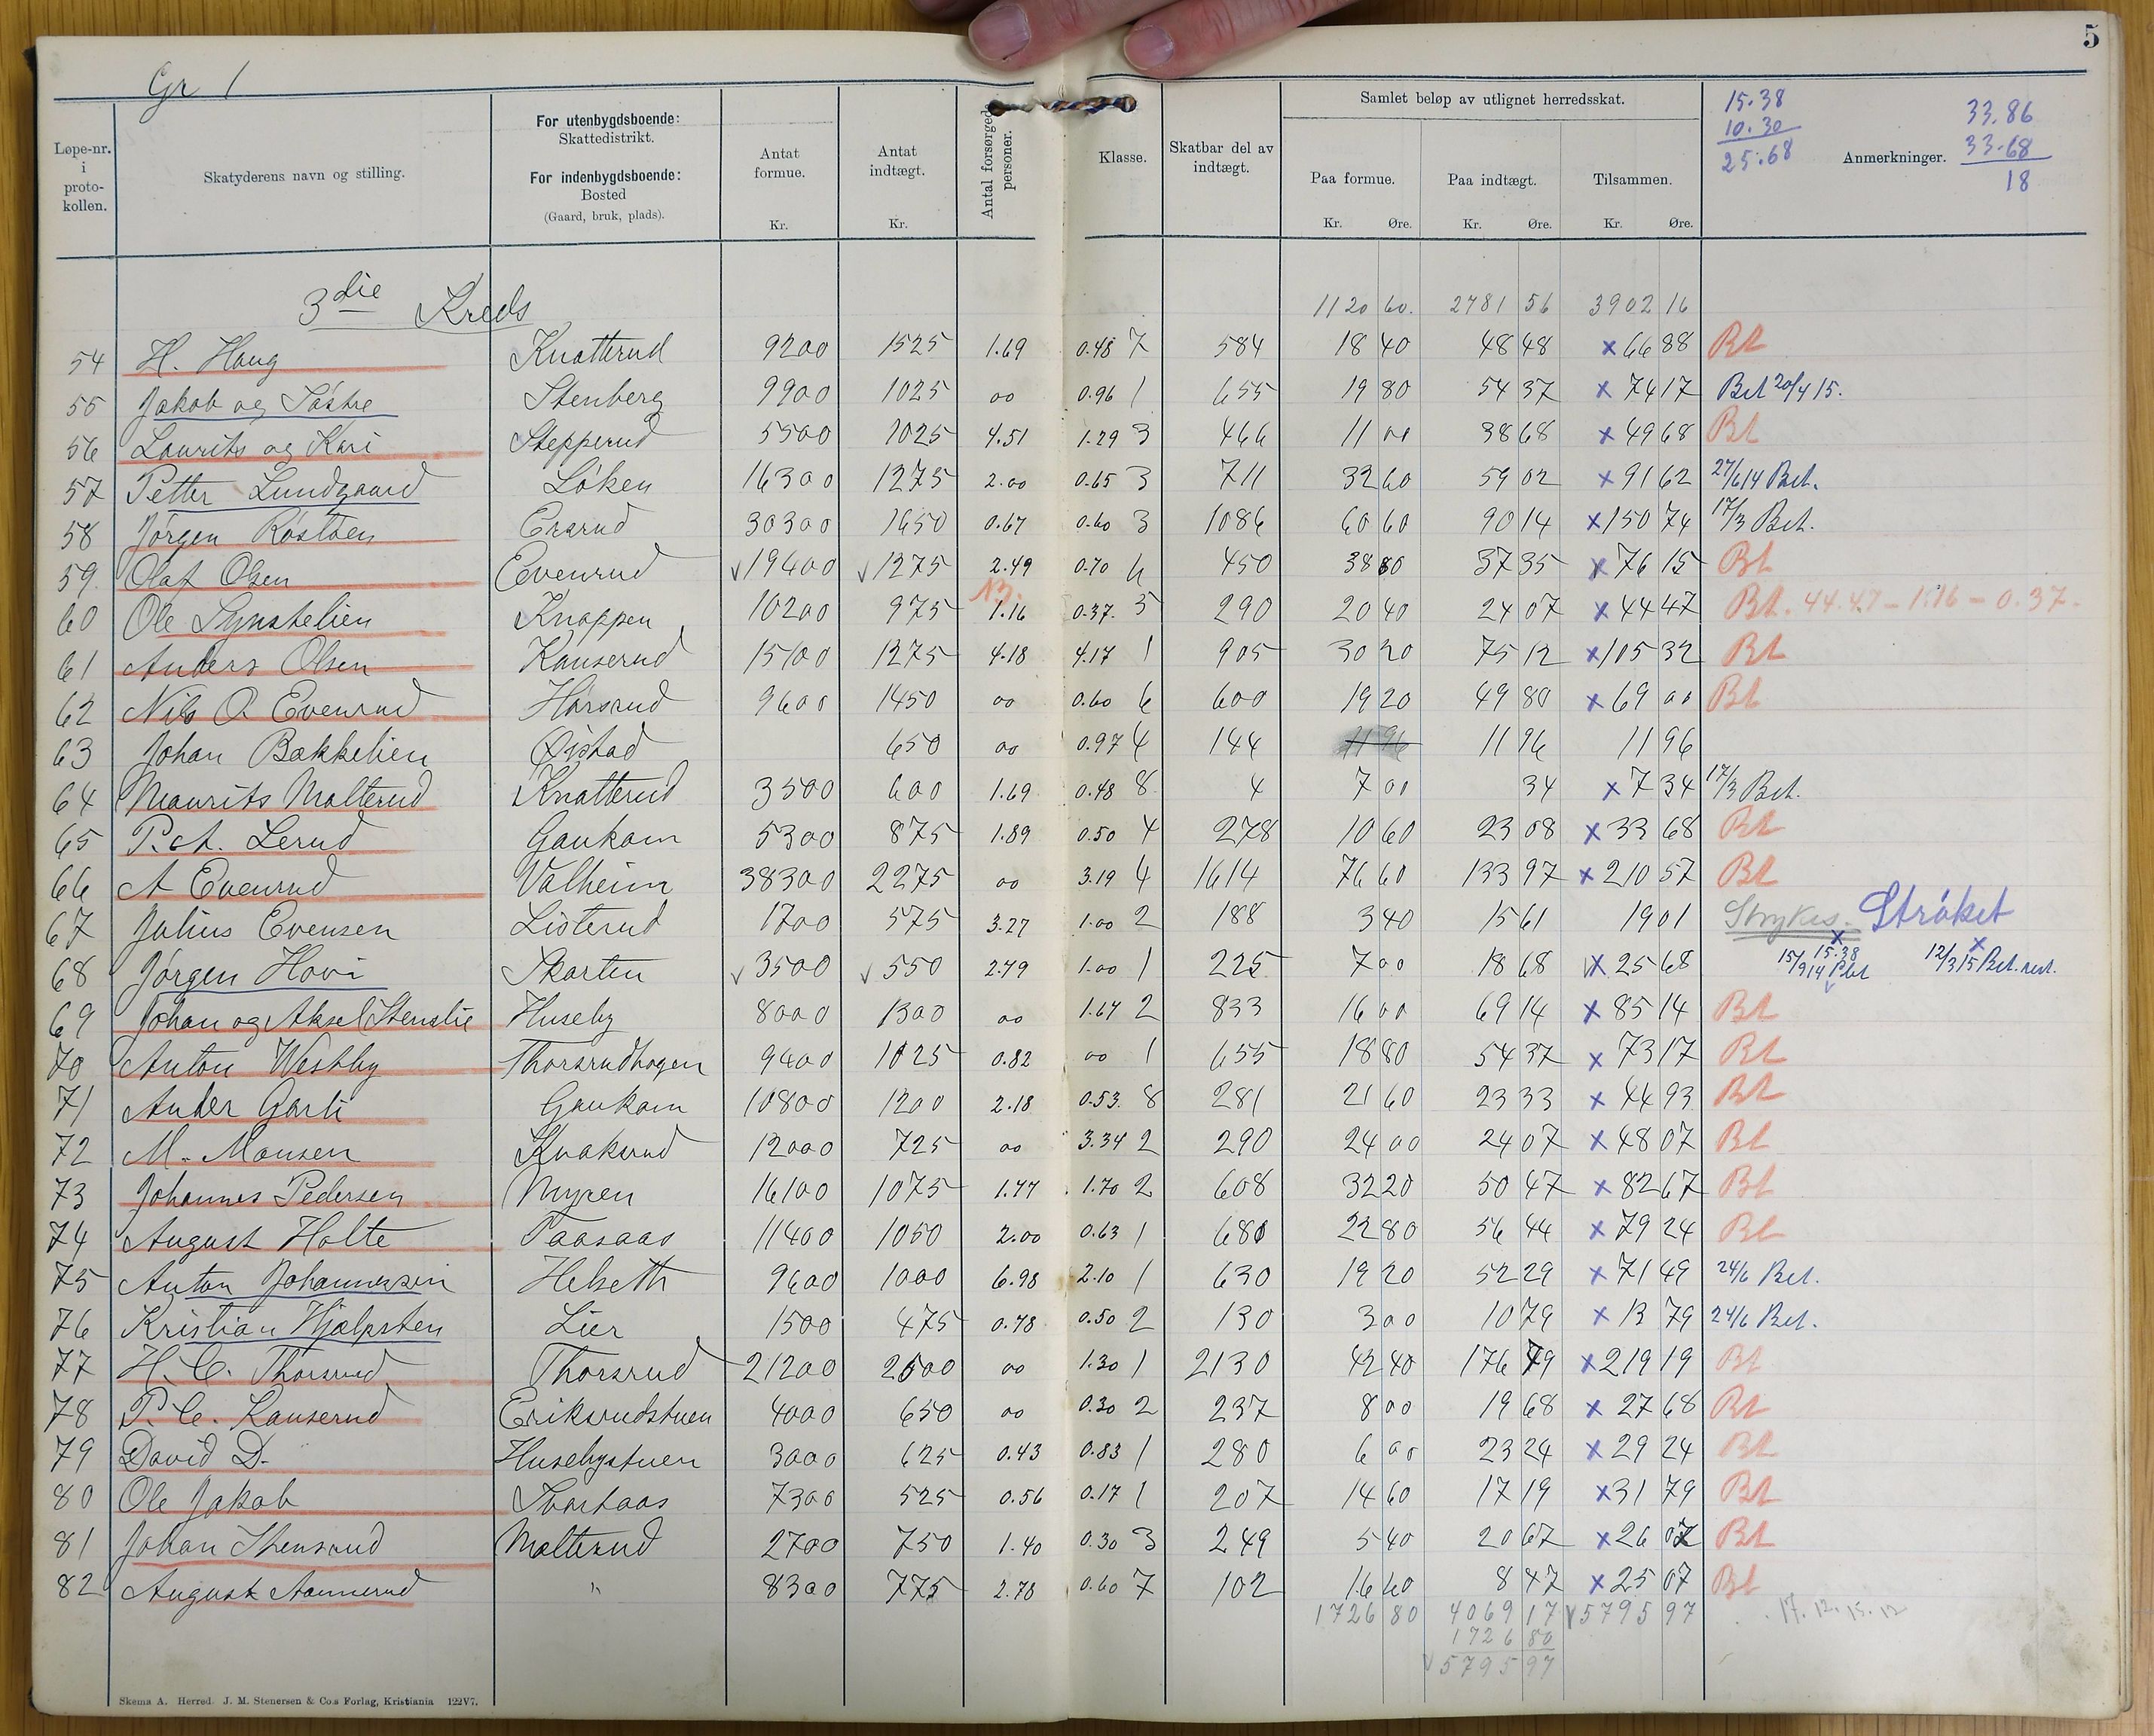 Gr 1
5
Løpe-nr. i proto- kollen.
Skatyderens navn og stilling.
For utenbygdsboende: Skattedistrikt.
For indenbygdsboende: Bosted (Gaard, bruk, plads).
Antat formue. Kr.
Antat indtægt. Kr.
Antal forsørgede personer.
Klasse.
Skatbar del av indtægt.
Samlet beløp av utlignet herredsskat.
Paa formue. Kr. Øre.
Paa indtægt. Kr. Øre.
Tilsammen. Kr. Øre.
Anmerkninger.
15.38
10.30
25.68
33.86
33.68
18
3die Kreds 1120 60. 2781 56 3902 16
54 H. Haug Knatterud 9200 1525 1.69 0.48 7 584 18 40 48 48 x 66 88 Bt
55 Jakob og Søstre Stenberg 9900 1025 00 0.96 1 655 19 80 54 37 x 74 17 Bet 20/4 15.
56 Laurits og Kari Stepperud 5500 1025 4.51 1.29 3 466 11 00 38 68 x 49 68 Bt
57 Petter Lundgaard Løken 16300 1275 2.00 0.65 3 711 32 60 59 02 x 91 62 27/6 14 Bet.
58 Jørgen Røstøen Ersrud 30300 1650 0.67 0.60 3 1086 60 60 90 14 x 150 74 17/3 Bet.
59. Olaf Olsen Evenrud 19400 1275 2.49 0.70 4 450 38 80 37 35 x 76 15 Bt
60 Ole Lynstelien Knappen 10200 975 1.16 0.37. 5 290 20 40 24 07 x 44 47 Bt. 44.47 - 1.16 - 0.37.
61 Anders Olsen Kauserud 15100 1275 4.18 4.17 1 905 30 20 75 12 x 105 32 Bt
62 Nils O. Evenrud Hørsrud 9600 1450 00 0.60 6 600 19 20 49 80 x 69 00 Bt
63 Johan Bakkelien Øistad 650 00 0.97 4 144 11 96 11 96 11 96
64 Maurits Malterud Knatterud 3500 600 1.69 0.48 8 4 7 00 34 x 7 34 17/3 Bet.
65 P. A. Lerud Gaukom 5300 875 1.89 0.50 4 278 10 60 23 08 x 33 68 Bt
66 A Evenrud Valheim 38300 2275 00 3.19 4 1614 76 60 133 97 x 210 57 Bt
67 Julius Evensen Listerud 1700 575 3.27 1.00 2 188 3 40 15 61 19 01 Strykes. Strøket
68 Jørgen Hovi Skarten 3500 550 2.79 1.00 1 225 7 00 18 68 x 25 68 15/9 14 15.38 12/3 15 Bet. rest.
69 Johan og Aksel Stenslie Huseby 8000 1300 00 1.67 2 833 16 00 69 14 x 85 14 Bt
70 Anton Westby Thorsrudhagen 9400 1025 0.82 00 1 655 18 80 54 37 x 73 17 Bt
71 Ander Garli Gaukom 10800 1200 2.18 0.53 8 281 21 60 23 33 x 44 93 Bt
72 M. Mausen Knakrud 12000 725 00 3.34 2 290 24 00 24 07 x 48 07 Bt
73 Johannes Pedersen Myren 16100 1075 1.77 1.70 2 608 32 20 50 47 x 82 67 Bt
74 August Holte Paasaas 11400 1050 2.00 0.63 1 680 22 80 56 44 x 79 24 Bt
75 Anton Johannessen Helseth 9600 1000 6.98 2.10 1 630 19 20 52 29 x 71 49 24/6 Bet.
76 Kristian Hjælpsten Lier 1500 475 0.78 0.50 2 130 3 00 10 79 x 13 79 24/6 Bet.
77 H. C. Thorsrud Thorsrud 21200 2600 00 1.30 1 2130 42 40 176 79 x 219 19 Bt
78 P. C. Kauserud Eriksrudstuen 4000 650 00 0.30 2 237 8 00 19 68 x 27 68 Bt
79 David D. Husebystuen 3000 625 0.43 0.83 1 280 6 00 23 24 x 29 24 Bt
80 Ole Jakob Svartaas 7300 525 0.56 0.17 1 207 14 60 17 19 x 31 79 Bt
81 Johan Stensrud Malterud 2700 750 1.40 0.30 3 249 5 40 20 67 x 26 07 Bt
82 August Aannerud " 8300 775 2.78 0.60 7 102 16 60 8 47 x 25 07 Bt
1726 80 4069 17 5795 97 17.12.15.12
1726 80
5795 97
Skema A. Herred. J. M. Stenersen & Co.s Forlag, Kristiania 122V7.